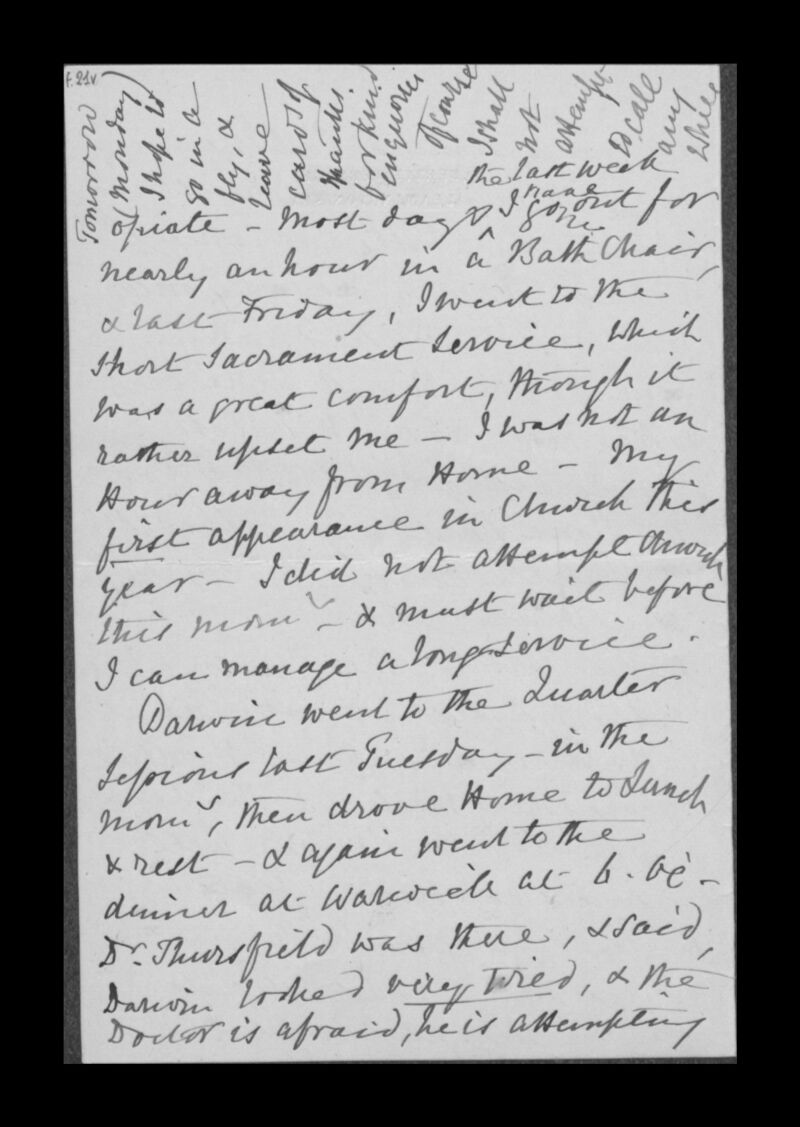 f. 21v
Tomorrow
(Monday)
I hope to
go in a
fly, &
leave
cards of
thanks
for kind
enquiries
Of course
I shall
not
attempt
to call
any
where
the last week
opiate – Most days I have gone out for
nearly an hour in a Bath Chair,
& last Friday, I went to the
short Sacrament Service, which
was a great comfort, though it
rather upset me – I was not an
Hour away from Home – My
first appearance in Church this
year – I did not attempt Church
this morng – & must wait before
I can manage a long Service.
Darwin went to the Quarter
Sessions last Tuesday – in the
morng, then drove Home to Lunch
& rest – & again went to the
dinner at Warwick at 6. oc –
Dr. Thursfield was there, & said,
Darwin looked very tired, & the
Doctor is afraid, he is attempting